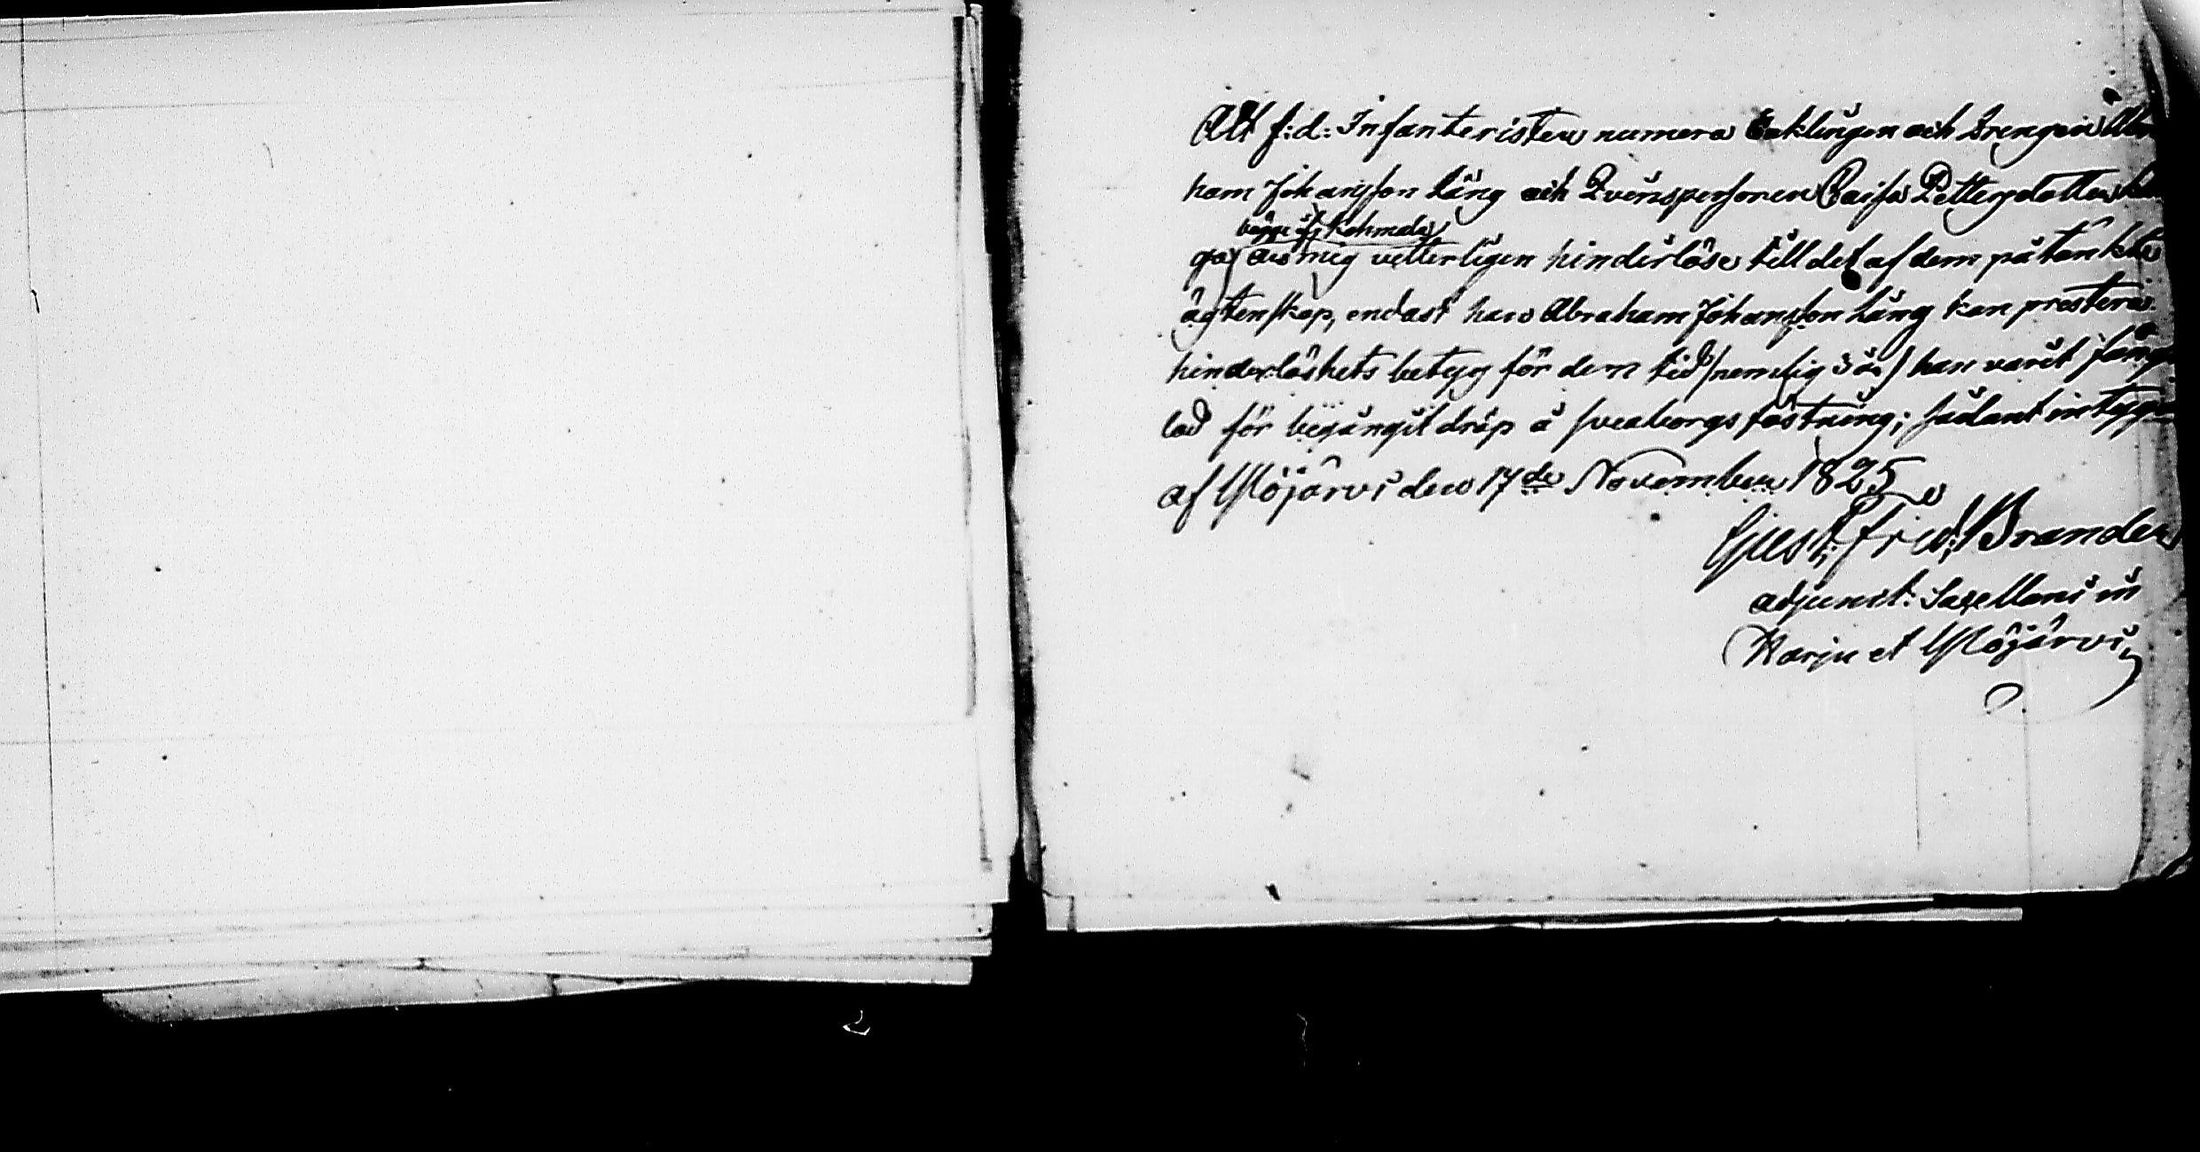 Att f:d: Infanteristen numera Enklingen och Drengen Abra
ham Johansson Läng och Qvinspersonen Caisa Pettersdotter
bägge i Kohmala
ga äro mig vetterligen hinderlöse till det af dem påtänkte
ägtenskap, endast han Abraham Johansson Läng kan prestera
hinderlöshets betyg för dem tid (nemlig 3 år) han varit fäng
lad för begångit dråp å Sveaborgs fästning; sådant intygar
af Ylöjärvi den 17de November 1825
Gust: Fried: Brander
adjunct: Sacellani in
Harju et Ylöjärvi